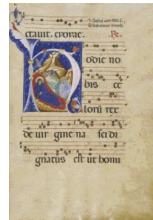 ctauit. cvovae.
odie no
bis ce
lorū rex
de uir gine na sci di
gnatus est ut homi